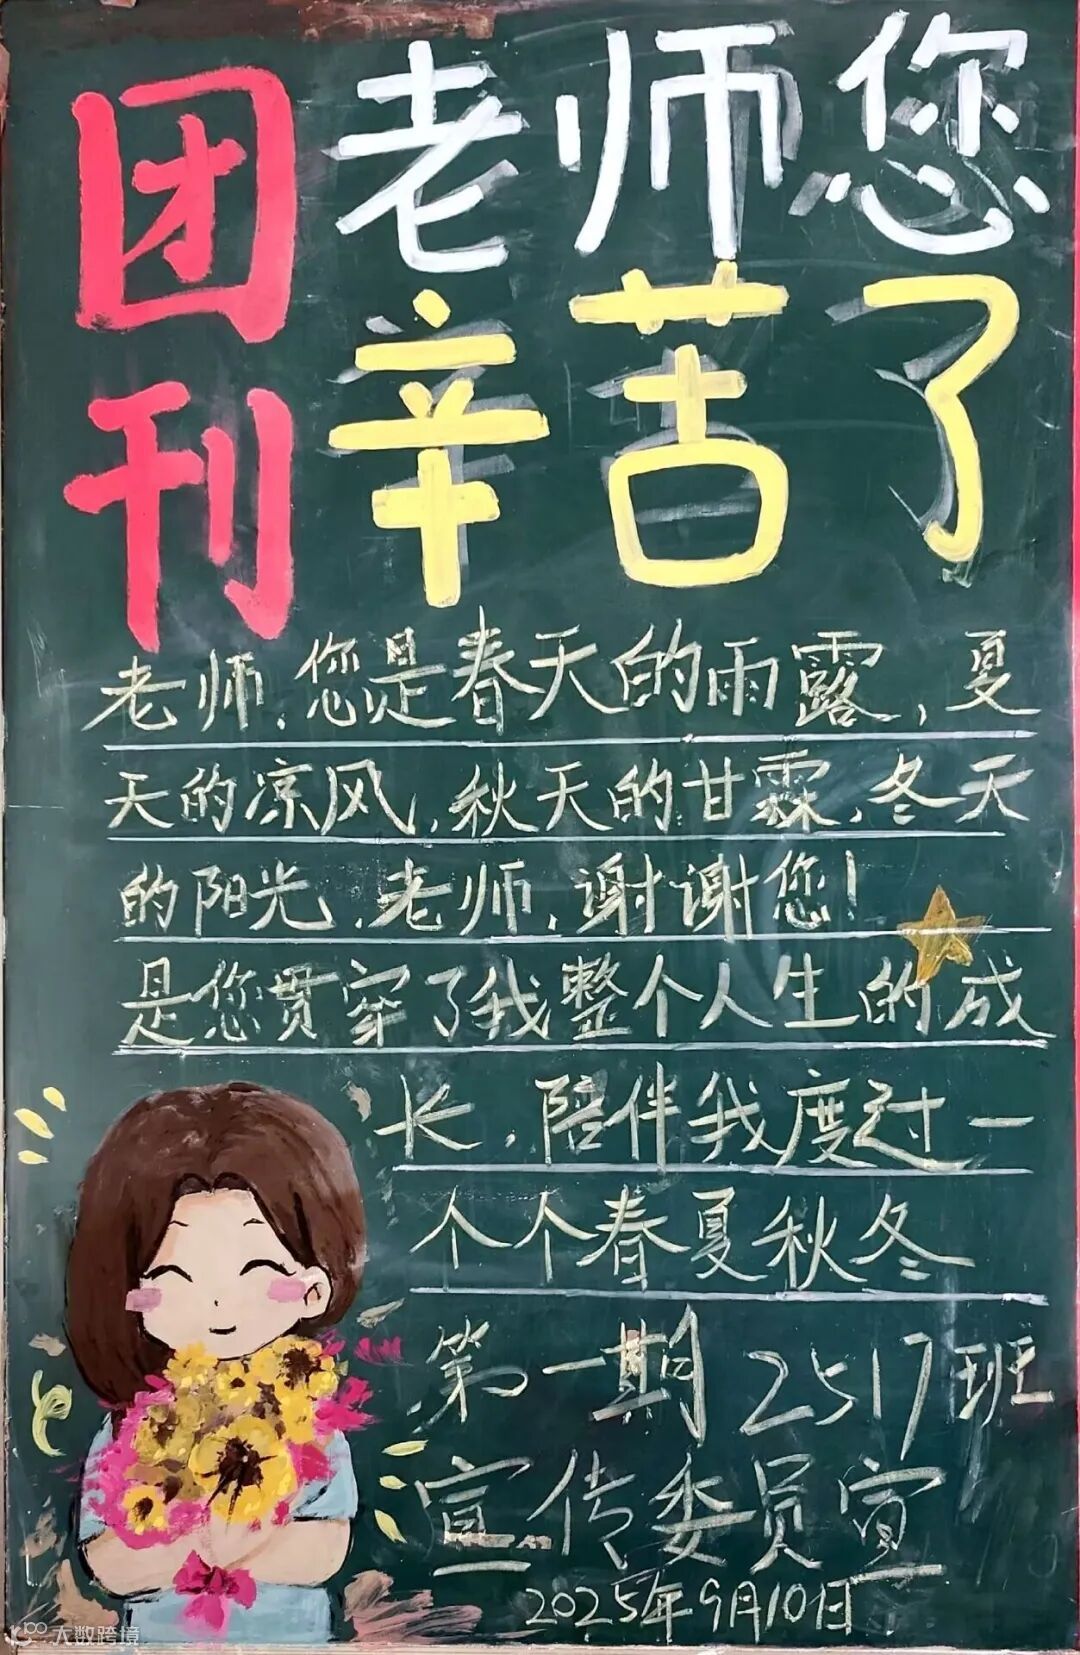 团刊
老师您
辛苦了
老师,您是春天的雨露,夏
天的凉风,秋天的甘霖,冬天
的阳光,老师,谢谢您!
是您贯穿了我整个人生的成
长,陪伴我度过一
个个春夏秋冬
第一期 2517班
宣传委员宣
2025年9月10日
大数跨境